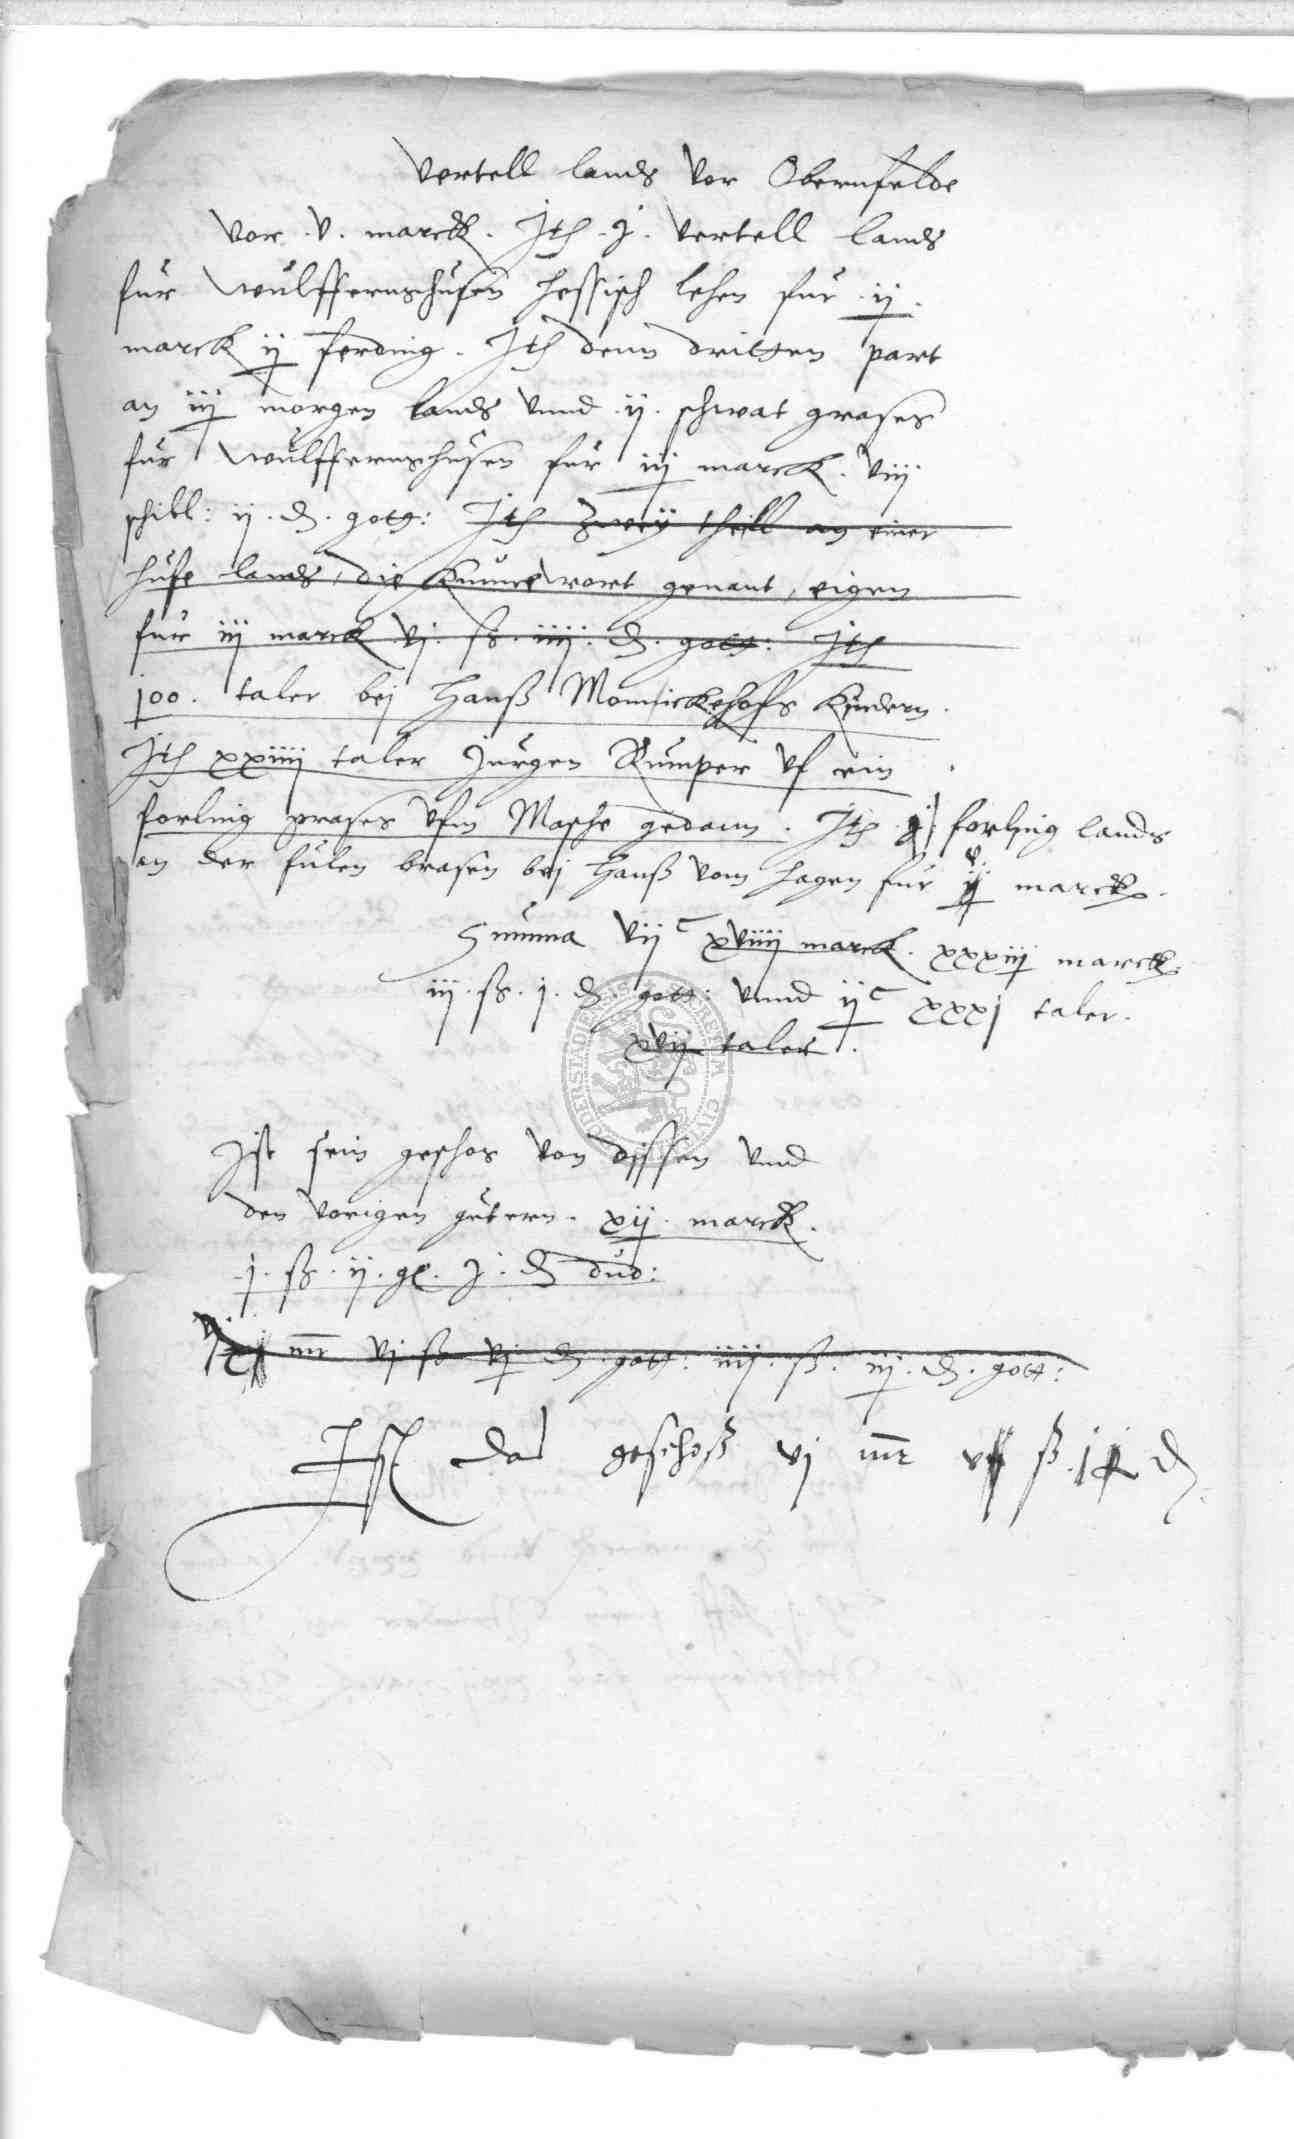 vertell lands vor Obernfelde
vor .v. marck. Ith .j. vertell lands
fur Wulffernshusen hessisch lehen fur .ij.
marck ij ferding. Ith denn dritten part
an iij morgen lands vnnd .ij. schwat grases
fur Wulffernshusen fur iij marck. viij
schill: ij. d. gott: Ith zweÿ theill an einer
hufe lands, die genant, eigen
fur iij marck vj: ß. iiij: d. gott: Ith
100. taler bej Hanß Monnickehofs kindern.
Ith xxiiij taler Jurgen Rumper vf ein
forling grases vfm Masche gedann. Ith .j. forling lands
an der fulen brasen bej Hanß vom Hagen fur v. marck.
Summa vij c xviiij marck. xxxiij marck.
iij. ß. j. d. gott: vnnd ij c xxxj taler.
xvij taler.
Ist sein geschos von dissen vnnd
den vorigen gutern. xij. marck.
j. ß. ij. j. d dud:
mr vj ß vj d. gott: iiij. ß. iij. d. gott:
Ist das geschoß vj mr ß. d
DERSTADEN CIV